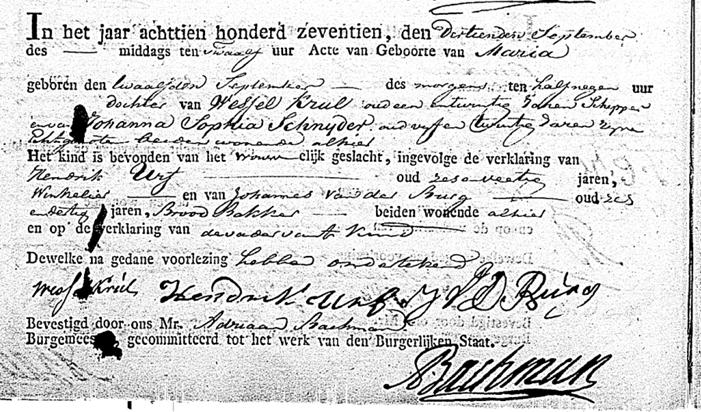 In het jaar achttien honderd zeventien, den Dertienden September
des — middags ten twaalf uur Acte van Geboorte van Maria
geboren den twaalfden September — des morgens ten half negen uur
dochter van Wessel Krul oud een en twintig Jaren Schipper
en van Johanna Sophia Schnyder oud vyf en twintig Jaren zyne
Echtgenote beiden wonende alhier
Het kind is bevonden van het vrouwelijk geslacht, ingevolge de verklaring van
Hendrik — oud zes en veertig jaren,
Winkelier — en van Johannes van der Burg — oud zes
en dertig jaren, Brood Bakker — beiden wonende alhier
en op de verklaring van de vader van 't Kind
Dewelke na gedane voorlezing hebben ondertekend
Wessel Krul Hendrik J V D Burg
Bevestigd door ons Mr. Adriaan Bachman
Burgemees gecommitteerd tot het werk van den Burgerlijken Staat.
ABachman